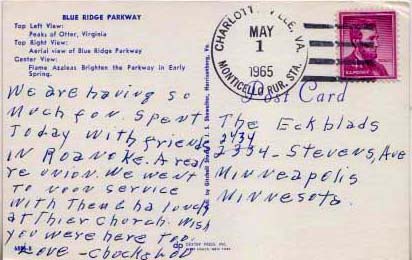 BLUE RIDGE PARKWAY
Top Left View:
Peaks of Otter, Virginia
Top Right View:
Aerial view of Blue Ridge Parkway
Center View:
Flame Azaleas Brighten the Parkway in Early
Spring.
We are having so
Much fun. Spent
Today with friends
in Roanoke. A real
re union. We went
To noon service
with Them & ha lovely
at Thier Church. Wish
you were here too.
Love -
DEXTER PRESS, INC.
WEST NYACK, NEW YORK
CHARLOTTESVILLE, VA.
MAY
1
1965
MONTICELLO RUR. STA.
U.S. POSTAGE
Post Card
The Eckblads
2434
2334 - Stevens, Ave
Minneapolis
Minnesota.